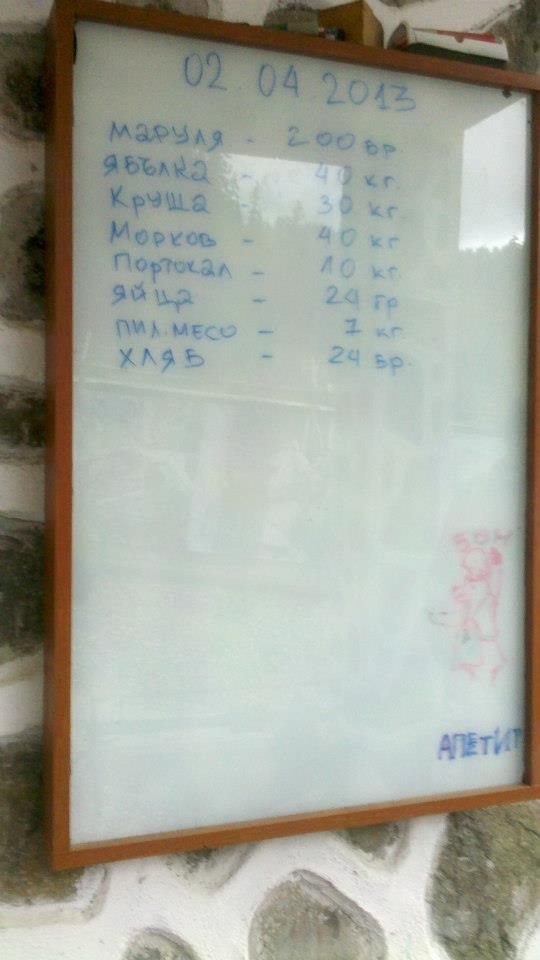 02.04.2013
МАРУЛЯ - 200 БР.
ЯБЪЛКА - 40 кг.
КРУША - 30 кг.
МОРКОВ - 40 кг
ПОРТОКАЛ - 10 кг.
ЯЙЦА - 24 гр
ПИЛ.МЕСО - 7 кг
ХЛЯБ - 24 БР.
БОН
АПЕТИТ